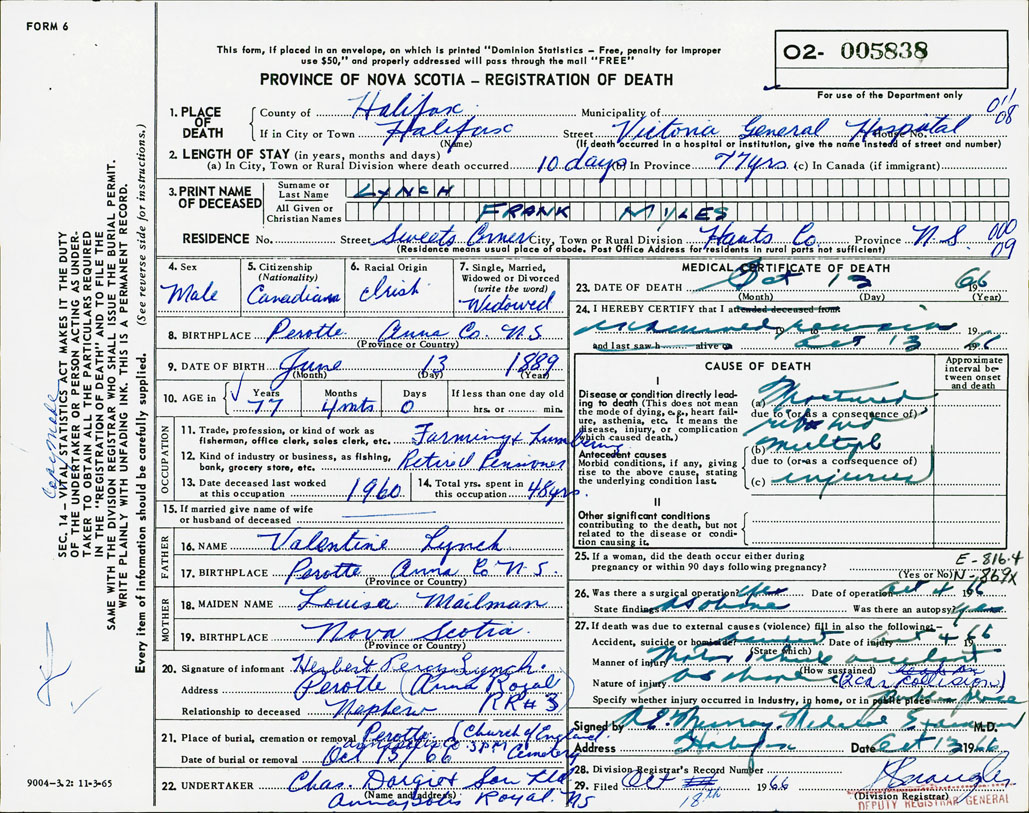 FORM 6
This form, if placed in an envelope, on which is printed "Dominion Statistics – Free, penalty for improper
use $50," and properly addressed will pass through the mail "FREE"
PROVINCE OF NOVA SCOTIA – REGISTRATION OF DEATH
02- 005838
For use of the Department only
011
08
1. PLACE OF DEATH
County of Halifax Municipality of
If in City or Town Halifax Street Victoria General Hospatal House No.
(Name) (If death occurred in a hospital or institution, give the name instead of street and number)
2. LENGTH OF STAY (in years, months and days)
(a) In City, Town or Rural Division where death occurred 10 days (b) In Province 77 yrs (c) In Canada (if immigrant)
3. PRINT NAME OF DECEASED
Surname or Last Name LYNCH
All Given or Christian Names FRANK MYLES
RESIDENCE No. Street Sweets Corner City, Town or Rural Division Hants Co Province N.S. 000
09
(Residence means usual place of abode. Post Office Address for residents in rural parts not sufficient)
4. Sex
Male
5. Citizenship
(Nationality)
Canadian
6. Racial Origin
Irish
7. Single, Married,
Widowed or Divorced
(write the word)
Widowed
8. BIRTHPLACE Perotte Anna Co. N.S
(Province or Country)
9. DATE OF BIRTH June 13 1889
(Month) (Day) (Year)
10. AGE in
Years Months Days If less than one day old
77 4 mts 0 hrs. or min.
OCCUPATION
11. Trade, profession, or kind of work as Farming & Lumbering
fisherman, office clerk, sales clerk, etc.
12. Kind of industry or business, as fishing, Retired Pensioner
bank, grocery store, etc.
13. Date deceased last worked
at this occupation 1960
14. Total yrs. spent in
this occupation 48 yrs.
15. If married give name of wife
or husband of deceased
FATHER
16. NAME Valentine Lynch
17. BIRTHPLACE Perotte Anna Co N.S.
(Province or Country)
MOTHER
18. MAIDEN NAME Louisa Mailman
19. BIRTHPLACE Nova Scotia.
(Province or Country)
20. Signature of informant Herbert Percy Lynch.
Address Perotte (Anna Royal
RR # 3)
Relationship to deceased Nephew
21. Place of burial, cremation or removal Perotte (Church of England
Annapolis Co 3 PM Cemetery
Date of burial or removal Oct 15/66
22. UNDERTAKER Chas. Dargie & Son Ltd
(Name and address) Annapolis Royal. NS
MEDICAL CERTIFICATE OF DEATH
23. DATE OF DEATH Oct 13 66
(Month) (Day) (Year)
24. I HEREBY CERTIFY that I attended deceased from
examined remains 19
and last saw h alive on Oct 13 1966
CAUSE OF DEATH
Approximate
interval be-
tween onset
and death
I
Disease or condition directly lead-
ing to death (This does not mean
the mode of dying, e.g., heart fail-
ure, asthenia, etc. It means the
disease, injury, or complication
which caused death.)
(a) Fractured
due to (or as a consequence of)
ribs and
Antecedent causes
Morbid conditions, if any, giving
rise to the above cause, stating
the underlying condition last.
(b) multiple
due to (or as a consequence of)
(c) injuries
II
Other significant conditions
contributing to the death, but not
related to the disease or condi-
tion causing it.
25. If a woman, did the death occur either during
pregnancy or within 90 days following pregnancy?
(Yes or No)
E - 816.4
N - 869x
26. Was there a surgical operation? Yes Date of operation Oct 4 1966
State findings as above Was there an autopsy? Yes
27. If death was due to external causes (violence) fill in also the following:–
Accident, suicide or homicide accident Date of injury Oct 4 1966
(State which)
Manner of injury Motor vehicle accident
(How sustained) (2 car collision)
Nature of injury As above
Specify whether injury occurred in Industry, in home, or in public place
Signed by Murray Medical Examiner M.D.
Address Halifax Date Oct 13 1966
28. Division Registrar's Record Number
29. Filed Oct 18th 1966
(Division Registrar)
DEPUTY REGISTRAR GENERAL
SEC. 14 – VITAL STATISTICS ACT MAKES IT THE DUTY
OF THE UNDERTAKER OR PERSON ACTING AS UNDER-
TAKER TO OBTAIN ALL THE PARTICULARS REQUIRED
IN THE "REGISTRATION OF DEATH" AND TO FILE THE
SAME WITH THE DIVISION REGISTRAR WHO SHALL ISSUE THE BURIAL PERMIT.
WRITE PLAINLY WITH UNFADING INK. THIS IS A PERMANENT RECORD.
Every item of information should be carefully supplied. (See reverse side for instructions.)
9004–3.2: 11-3-65